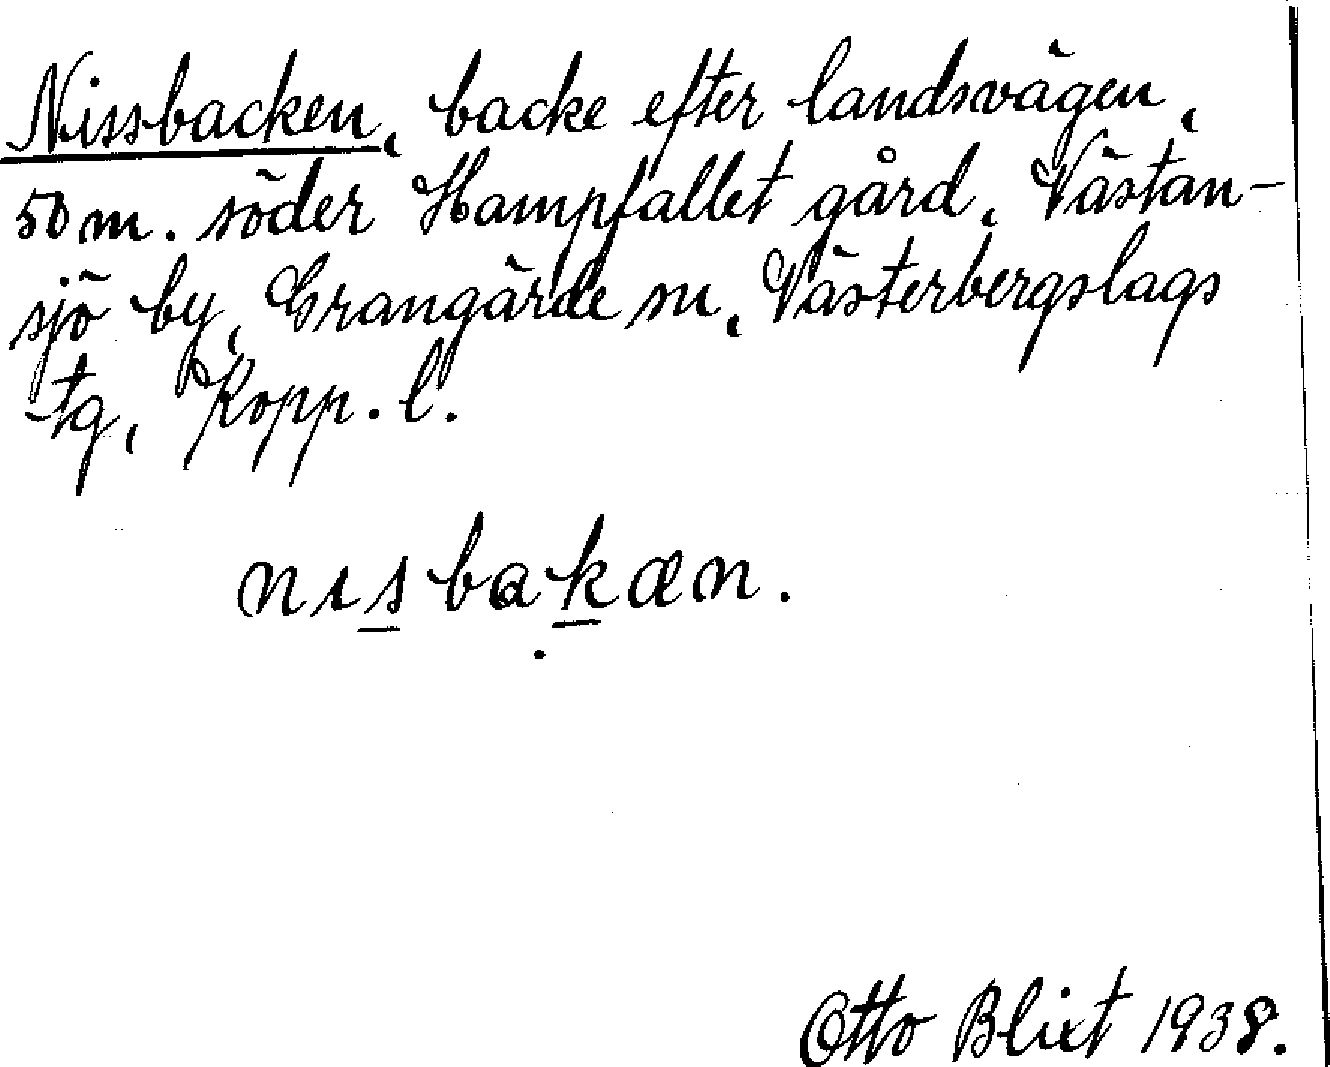 Nissbacken, backe efter landsvägen,
50 m. söder Hampfallet gård, Västan-
sjö by, Grangärde sn, Västerbergslags
tg, Kopp. l.
nɪsbakæn.
Otto Blixt 1938.